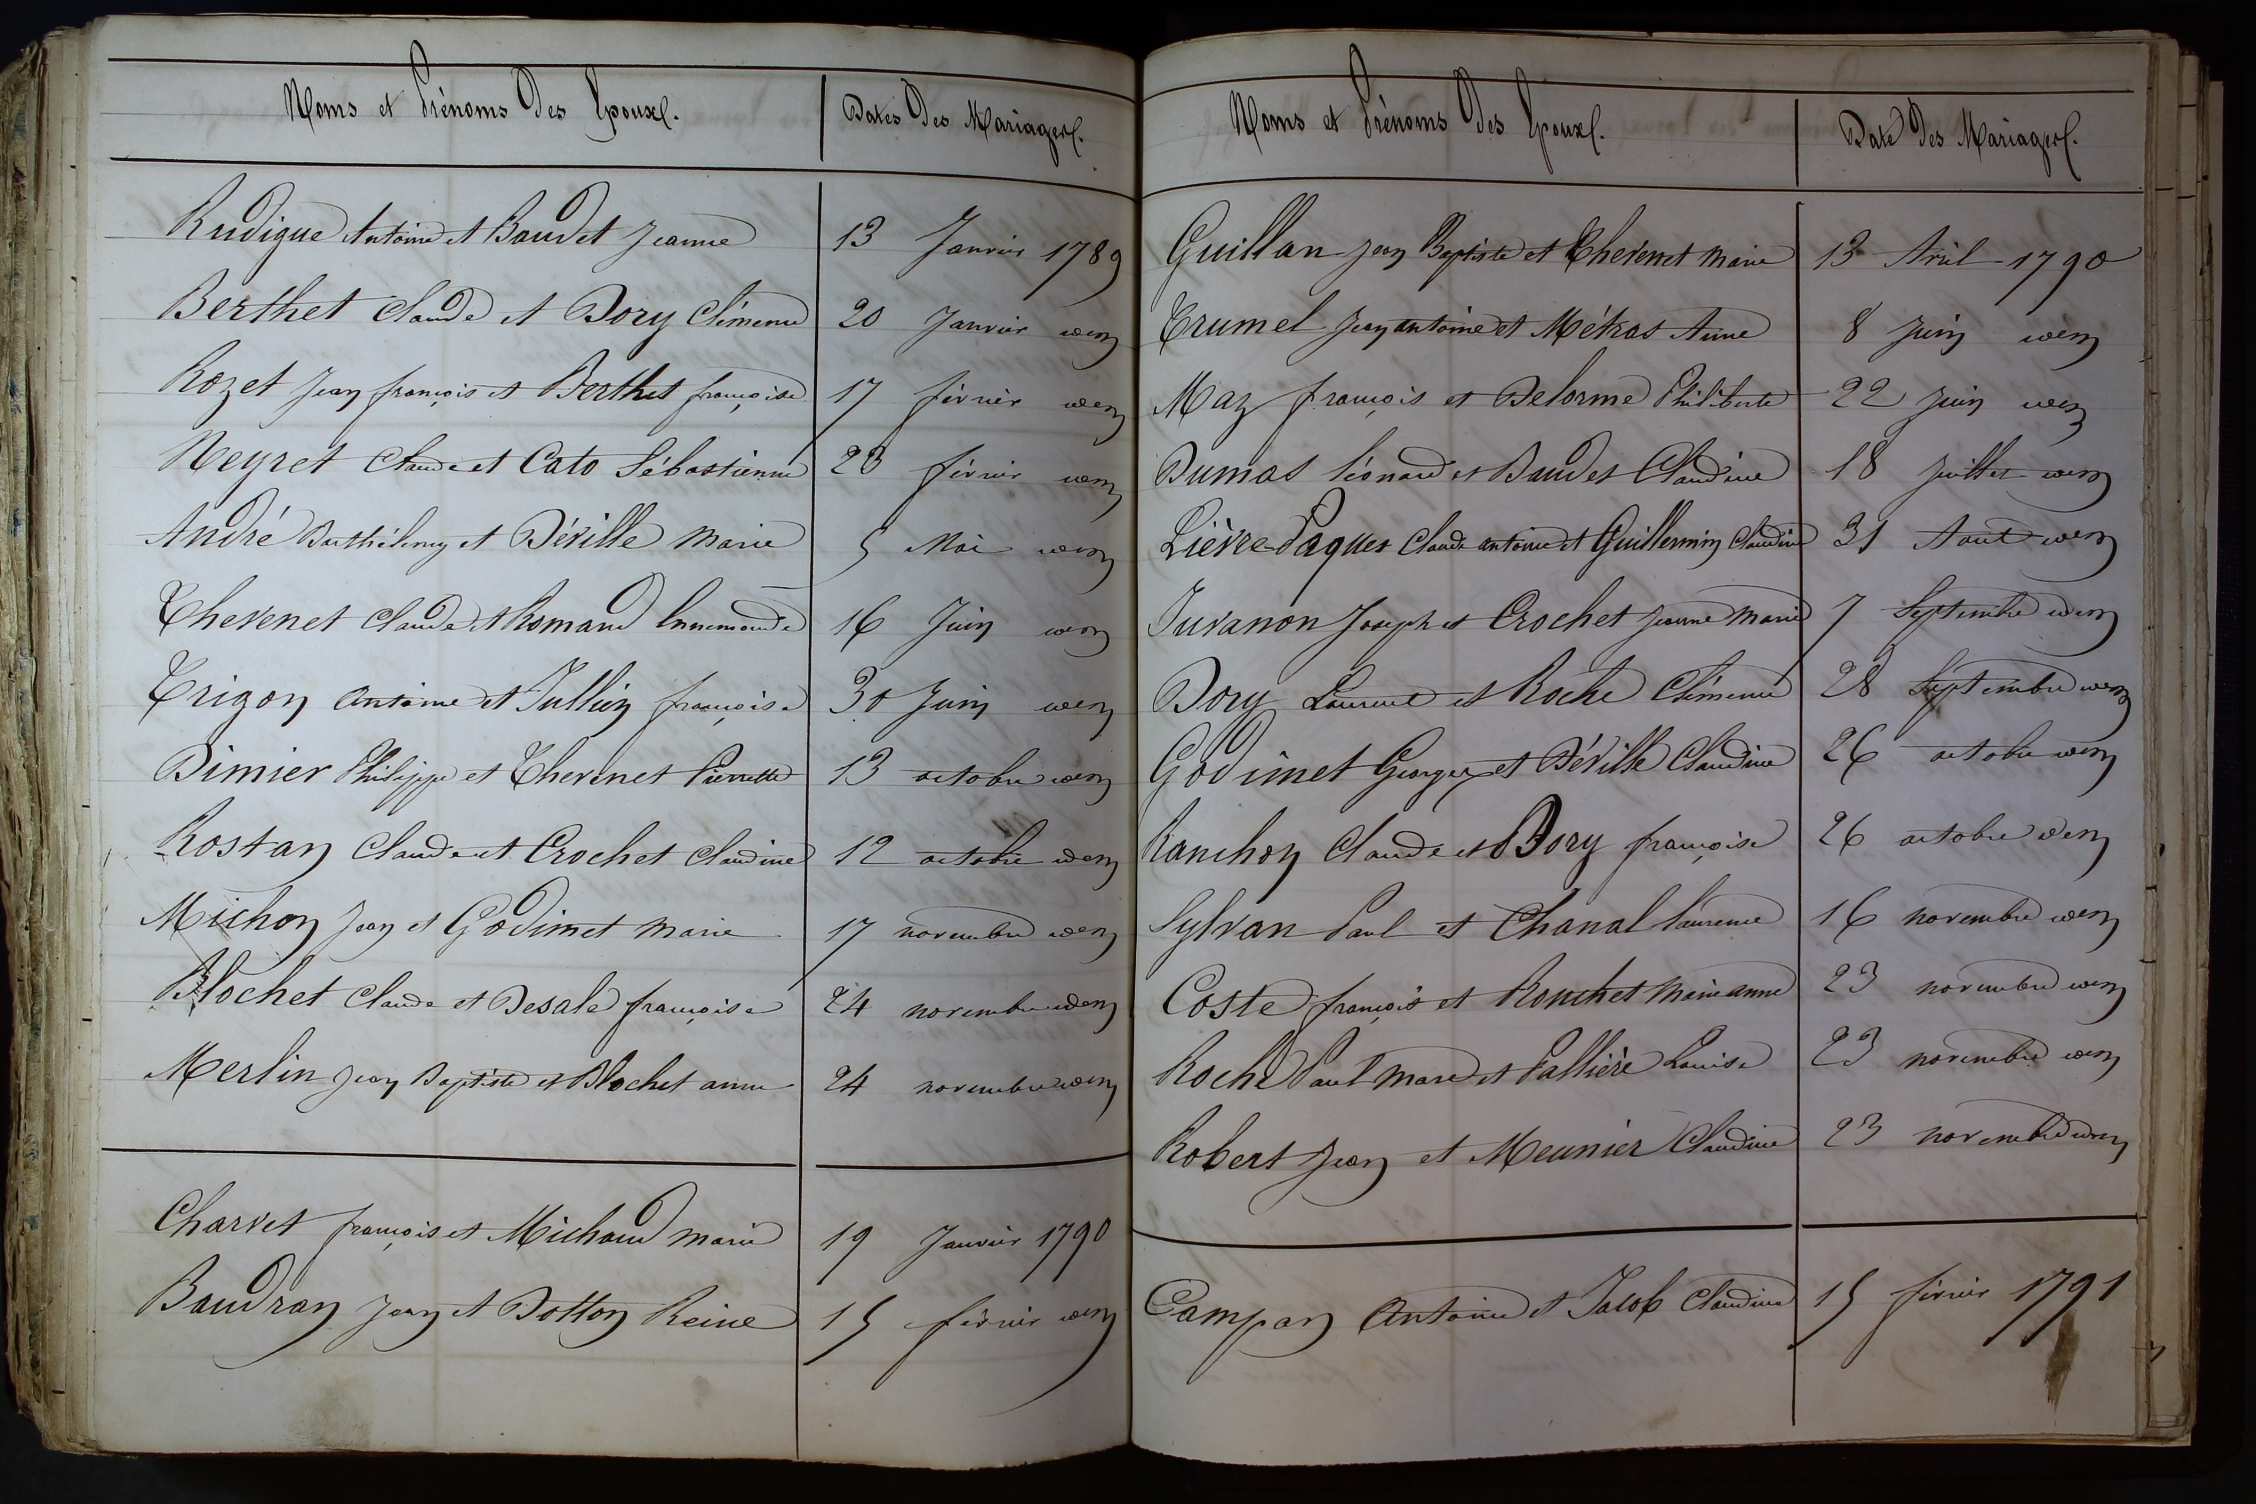 Noms et Prénoms Des Epoux. Dates Des Mariages.
Rudigue Antoine et Baudet Jeanne 13 Janvier 1789
Berthet Claude et Dory Clémence 20 Janvier idem
Rozet Jean françois et Berthet françoise 17 février idem
Neyret Claude et Cato Sébastienne 23 février idem
André Barthélemy et Déville Marie 5 Mai idem
Thevenet Claude et Romand Ennemonde 16 Juin idem
Trigon Antoine et Jullien françoise 30 Juin idem
Dimier Philippe et Thevenet Pierrette 13 octobre idem
Rostan Claude et Crochet Claudine 12 octobre idem
Michon Jean et Godimet Marie 17 novembre idem
Blochet Claude et Desale françoise 24 novembre idem
Merlin Jean Baptiste et Blochet anne 24 novembre idem
Charvet françois et Michaud Marie 19 Janvier 1790
Baudran Jean et Dotton Reine 15 février idem
Noms et Prénoms Des Epoux. Date Des Mariages.
Guillan Jean Baptiste et Thevenet Marie 13 Avril 1790
Trumel Jean antoine et Métras Anne 8 Juin idem
Maz françois et Delorme Philiberte 22 Juin idem
Dumas Léonard et Baudet Claudine 18 Juillet idem
Lièvre Paques Claude antoine et Guillermin Claudine 31 Aout idem
Juvanon Joseph et Crochet Jeanne Marie 7 Septembre idem
Dory Laurent et Roche Clémence 28 Septembre idem
Godimet Georges et Déville Claudine 26 octobre idem
Ranchon Claude et Dory françoise 26 octobre idem
Sylvan Paul et Chanal Laurence 16 novembre idem
Coste françois et Ronchet Marie anne 23 novembre idem
Roche Paul Marc et Pallière Louise 23 novembre idem
Robert Jean et Meunier Claudine 23 novembre idem
Campan Antoine et Jacob Claudine 15 février 1791